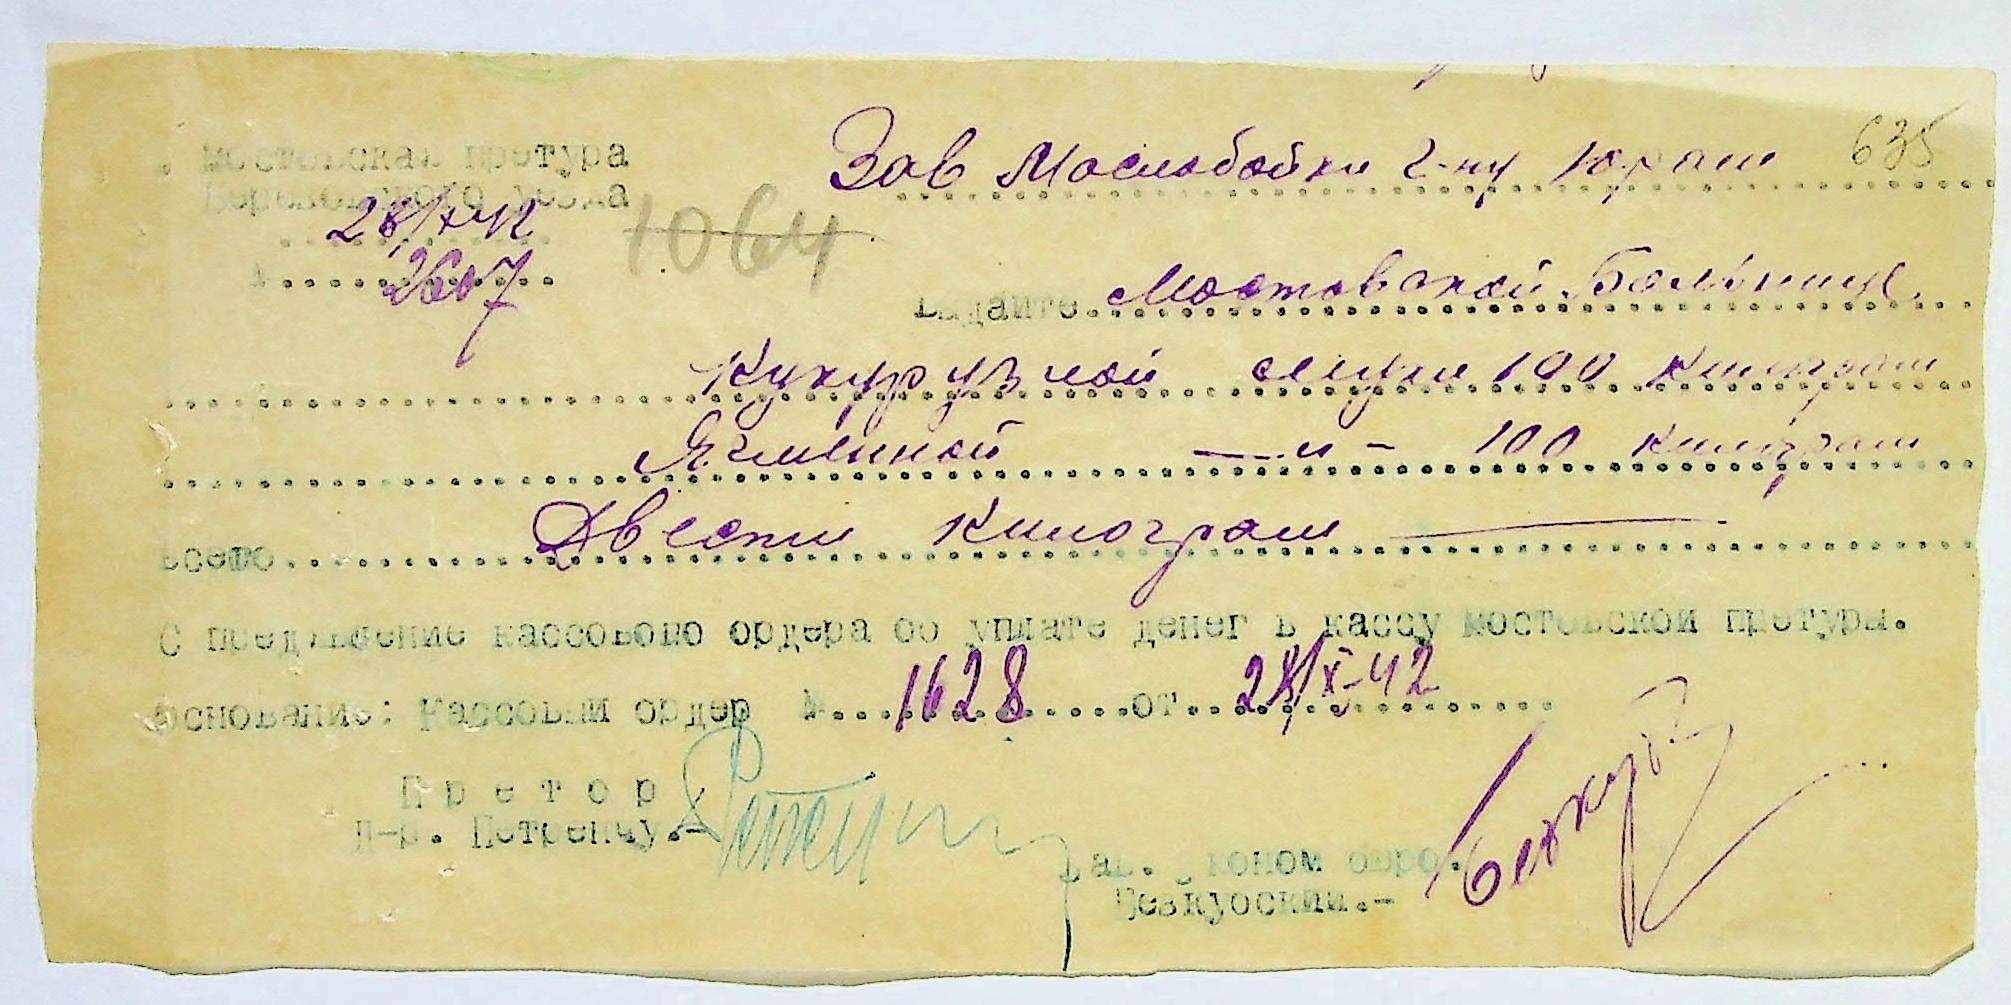 Мостовская претура
Березовского уезда
28/X 42
№ 2607
1064
635
Зав Маслобойки г-ну
Выдайте Мостовской Больнице
Кукурузной муки 100 килограм
Ячменной —— и - 100 килограм
Всего Двести килограм
С предъявление кассового ордера об уплате денег в кассу мостовской претуры.
Основание: Кассовый ордер № 1628 от 28/X-42
Претор
Д-р. Петренчу.-
Зав. Эконом бюро.